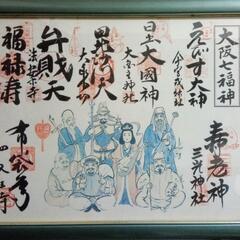 大阪七福神
寿老神
三光神社
ゑびす大神
今宮戎神社
日出大國神
大国主神社
毘沙門天
大乗坊
弁財天
法案寺
福禄寿
布袋尊
四天王寺